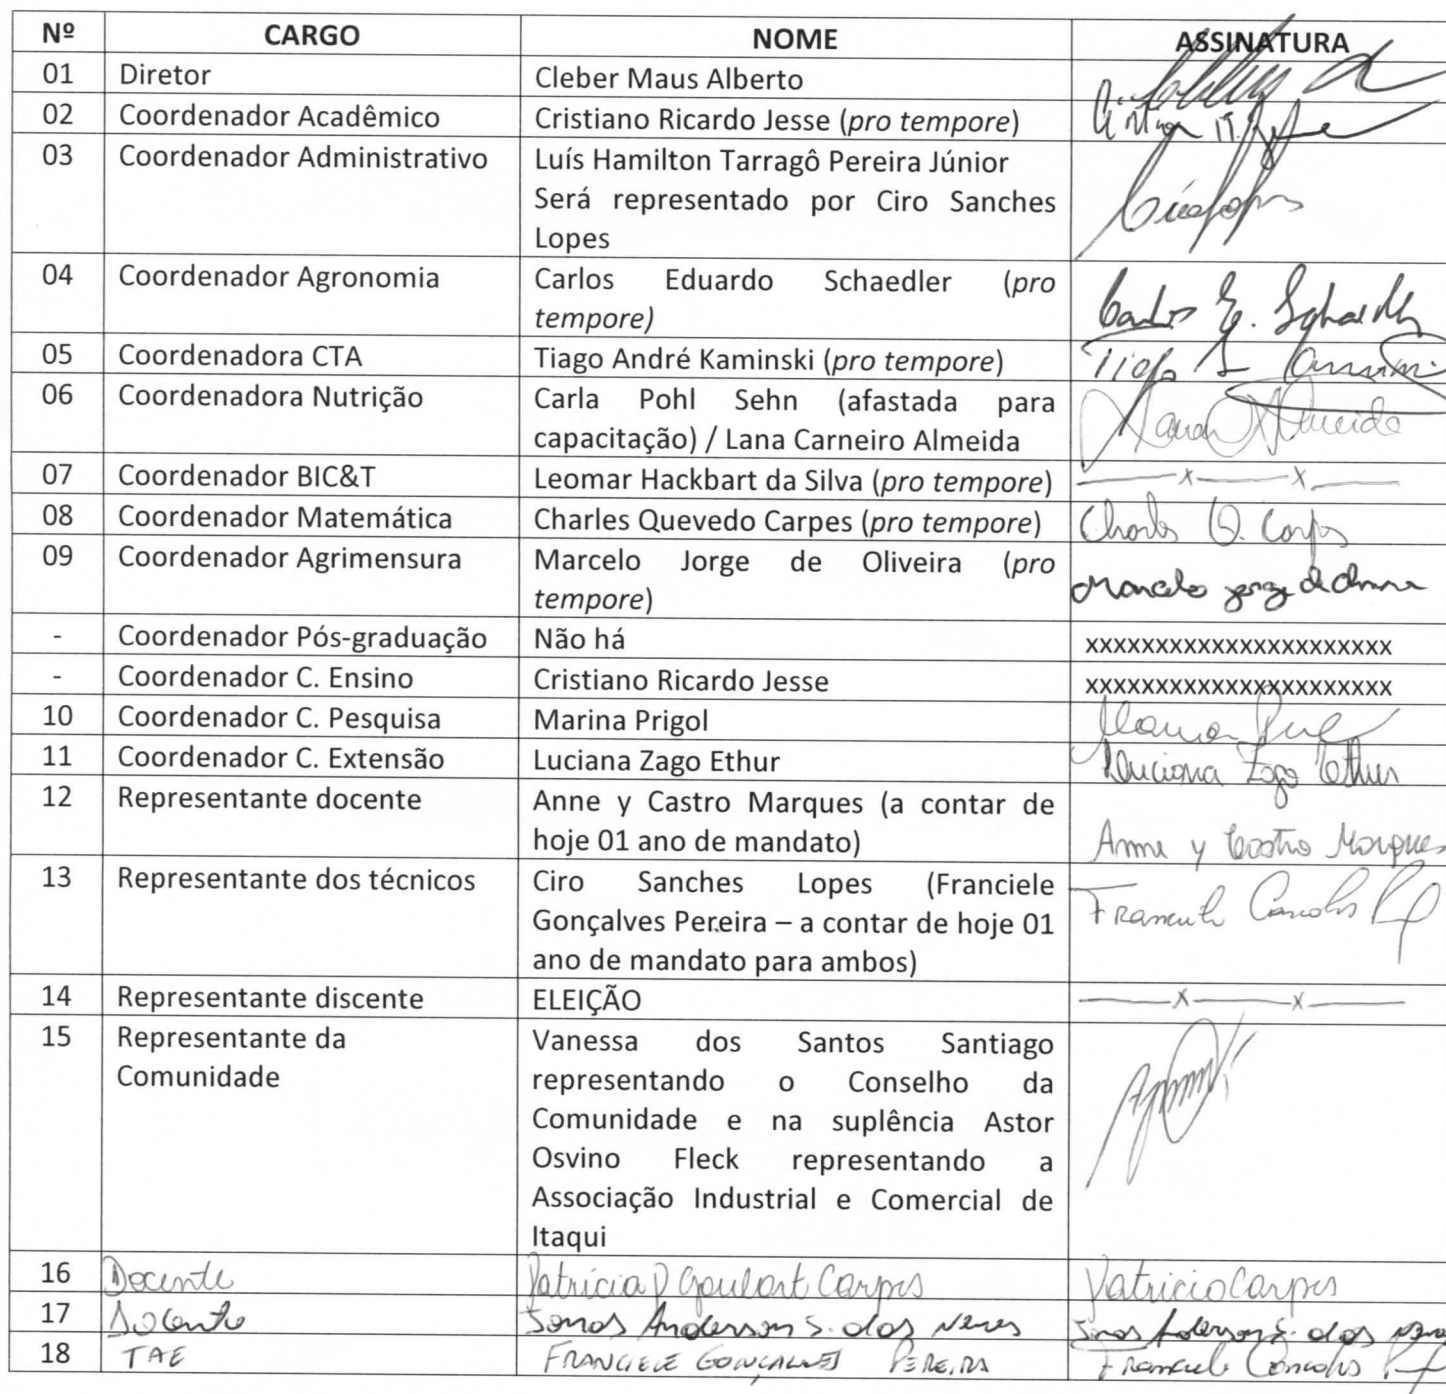 Nº CARGO NOME ASSINATURA
01 Diretor Cleber Maus Alberto
02 Coordenador Acadêmico Cristiano Ricardo Jesse (pro tempore)
03 Coordenador Administrativo Luís Hamilton Tarragô Pereira Júnior
Será representado por Ciro Sanches
Lopes
04 Coordenador Agronomia Carlos Eduardo Schaedler (pro
tempore) Carlos E. Schaedler
05 Coordenadora CTA Tiago André Kaminski (pro tempore)
06 Coordenadora Nutrição Carla Pohl Sehn (afastada para
capacitação) / Lana Carneiro Almeida
07 Coordenador BIC&T Leomar Hackbart da Silva (pro tempore) ——x——x——
08 Coordenador Matemática Charles Quevedo Carpes (pro tempore) Charles Q. Carpes
09 Coordenador Agrimensura Marcelo Jorge de Oliveira (pro
tempore) Marcelo Jorge de Oliveira
- Coordenador Pós-graduação Não há xxxxxxxxxxxxxxxxxxxxxx
- Coordenador C. Ensino Cristiano Ricardo Jesse xxxxxxxxxxxxxxxxxxxxxx
10 Coordenador C. Pesquisa Marina Prigol
11 Coordenador C. Extensão Luciana Zago Ethur Luciana Zago Ethur
12 Representante docente Anne y Castro Marques (a contar de
hoje 01 ano de mandato) Anne y Castro Marques
13 Representante dos técnicos Ciro Sanches Lopes (Franciele
Gonçalves Pereira – a contar de hoje 01
ano de mandato para ambos)
14 Representante discente ELEIÇÃO ——x——x——
15 Representante da Vanessa dos Santos Santiago
Comunidade representando o Conselho da
Comunidade e na suplência Astor
Osvino Fleck representando a
Associação Industrial e Comercial de
Itaqui
16 Docente Patrícia P Goulart Carpes Patricia Carpes
17 Docente Jonas Anderson S. dos Neves Jonas Anderson S. dos Neves
18 TAE FRANCIELE GONÇALVES PEREIRA